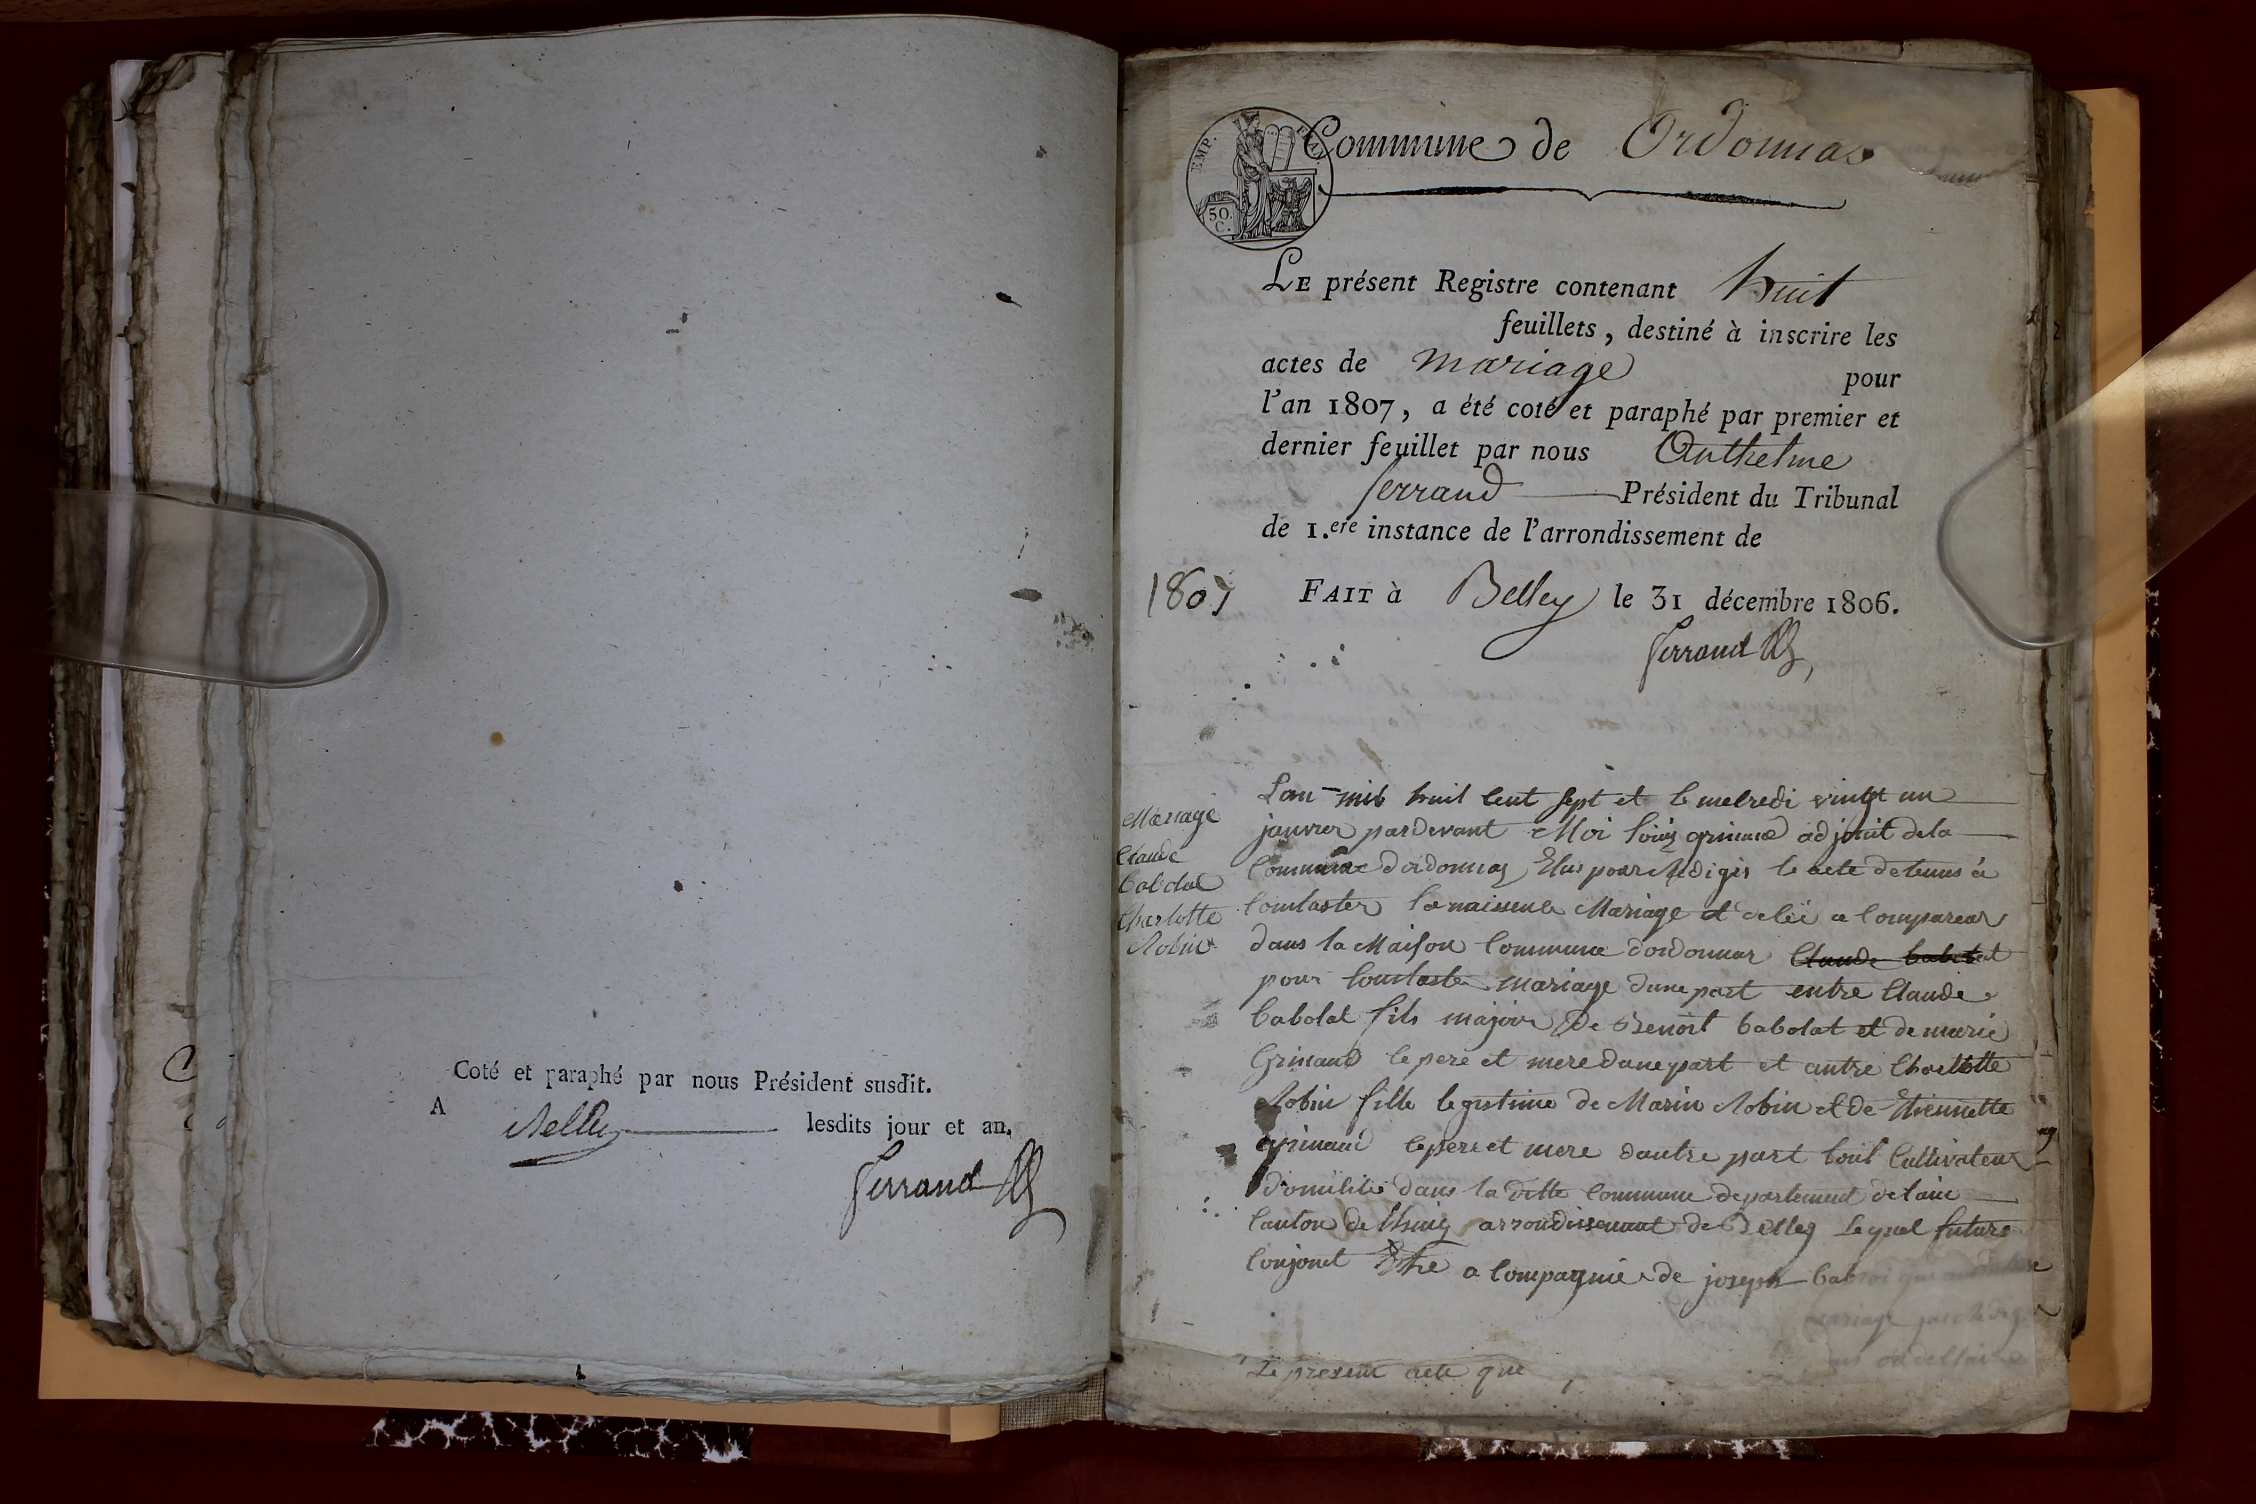 Coté et paraphé par nous Président susdit.
A Belley lesdits jour et an.
Ferrand
EMP.
50.
C.
Commune de Ordonnas
LE présent Registre contenant huit
feuillets, destiné à inscrire les
actes de mariage pour
l'an 1807, a été coté et paraphé par premier et
dernier feuillet par nous Anthelme
ferrand Président du Tribunal
de 1.ere instance de l'arrondissement de
FAIT à Belley le 31 décembre 1806.
1807
Ferrand
Mariage
Claude
babolat
Charlotte
Robin
Lan mil huit cent sept et le mecredi vingt un
janvier pardevant Moi louis grinand adjoint de la
Commune dordonnas Elus pour Redigér le acte detenus à
Constaster la naissence Mariage et a comparear
dans la Maison Commune dordonnas Claude babolat
pour Constaster mariage dune part entre Claude
babolat fils majour De Benoit babolat et de marie
Grinand le pere et mere dune part et autre Charlotte
Robin fille legistime de Marin Robin et de Etiennette
grinand le pere et mere dautre part tout Cultivateur
domicilié dans la ditte Commune departement delain
Canton de lhuis arrondissemant de Belley lequel futurs
Conjont Etre a Compagnié de joseph
mariage
Le present acte que